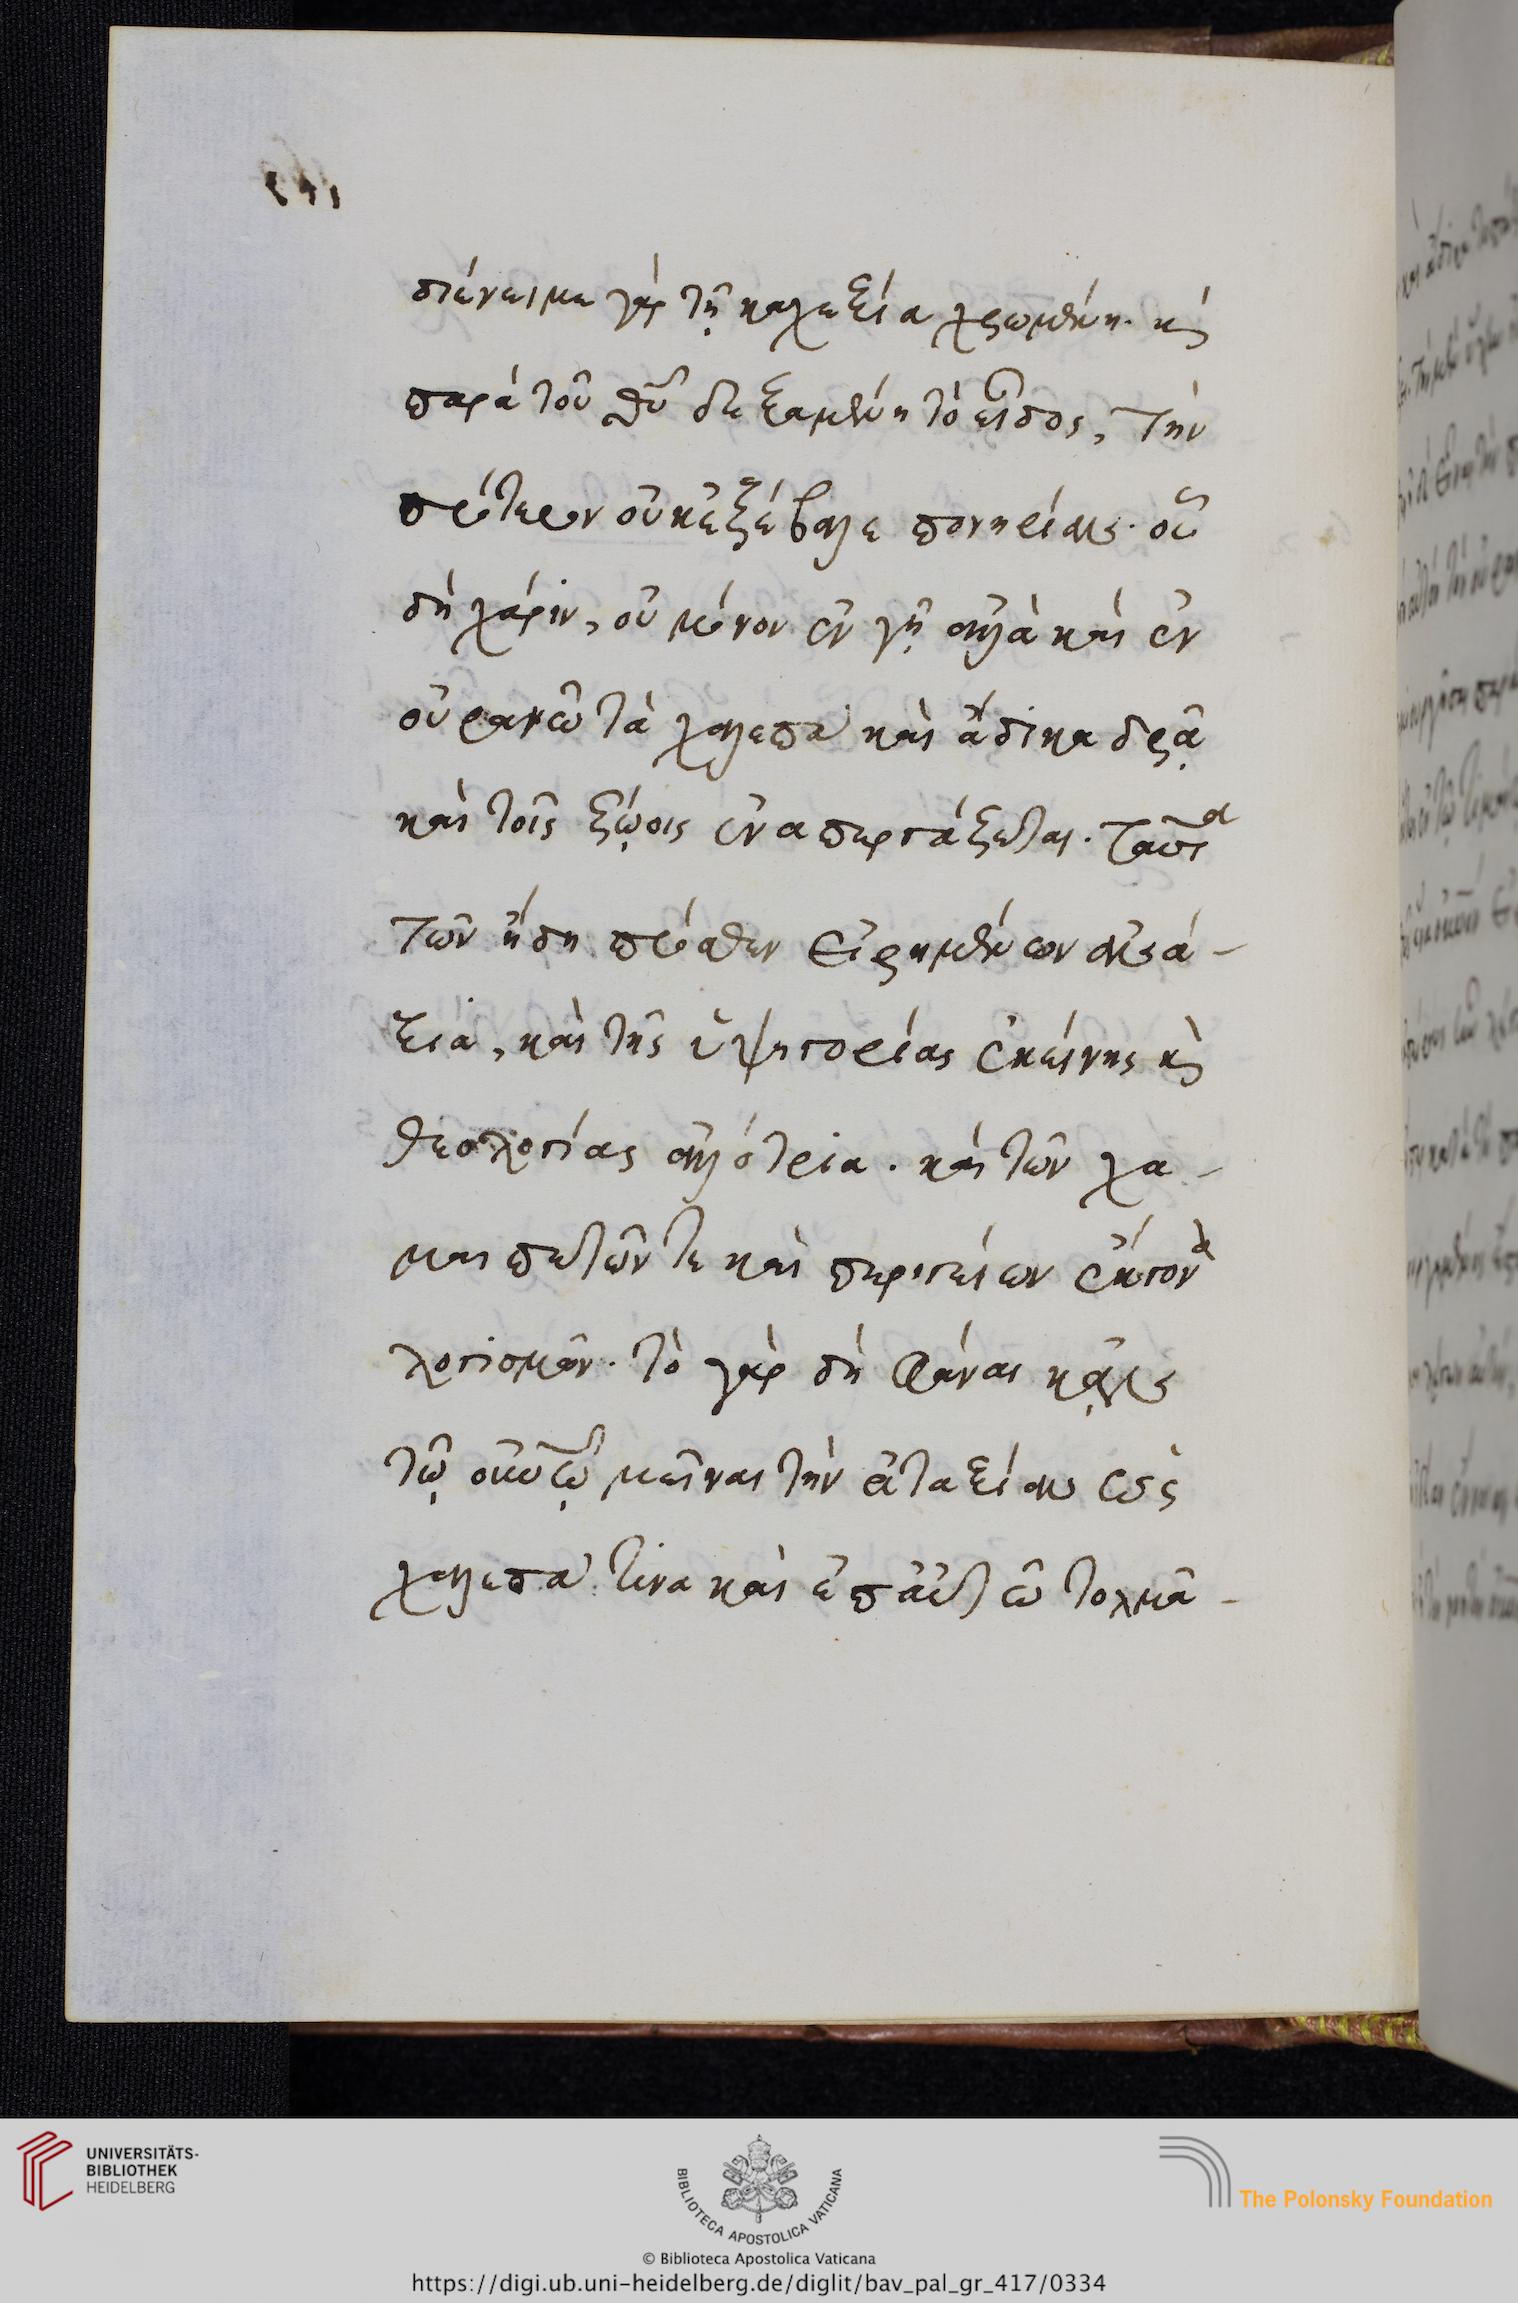 διέμεινε γὰρ τῇ καχεξία χρωμένη· κὶ
παρὰ τοῦ θυ δεξαμένη τὸ εἶδος, τὴν
πρότερον οὐκ ἐξέβαλε πονηρίαν· οὗ
δὴ χάριν, οὐ μόνον ἐν γῇ ἀλλὰ καὶ ἐν
οὐρανῶ τὰ χαλεπὰ καὶ ἄδικα δρᾷ
καὶ τοῖς ζῴοις ἐναπεργάζεται. ταῦτα
τῶν ἤδη πρόσθεν εἰρημένων ἀνά-
ξια, καὶ τῆς ὑψηγορίας ἐκείνης κὶ
θεολογίας ἀλλότρια. καὶ τῶν χα-
μαιπετῶν τε καὶ περιγείων ἔκγονα
λογισμῶν. τὸ γὰρ δὴ φάναι κᾂν
τῷ οὐνῷ μεῖναι τὴν ἀταξίαν ὡς
χαλεπά τινα καὶ ἐπ' αὐτῶ τολμᾶ-
UNIVERSITÄTS-
BIBLIOTHEK
HEIDELBERG
BIBLIOTECA APOSTOLICA VATICANA
The Polonsky Foundation
© Biblioteca Apostolica Vaticana
https://digi.ub.uni-heidelberg.de/diglit/bav_pal_gr_417/0334